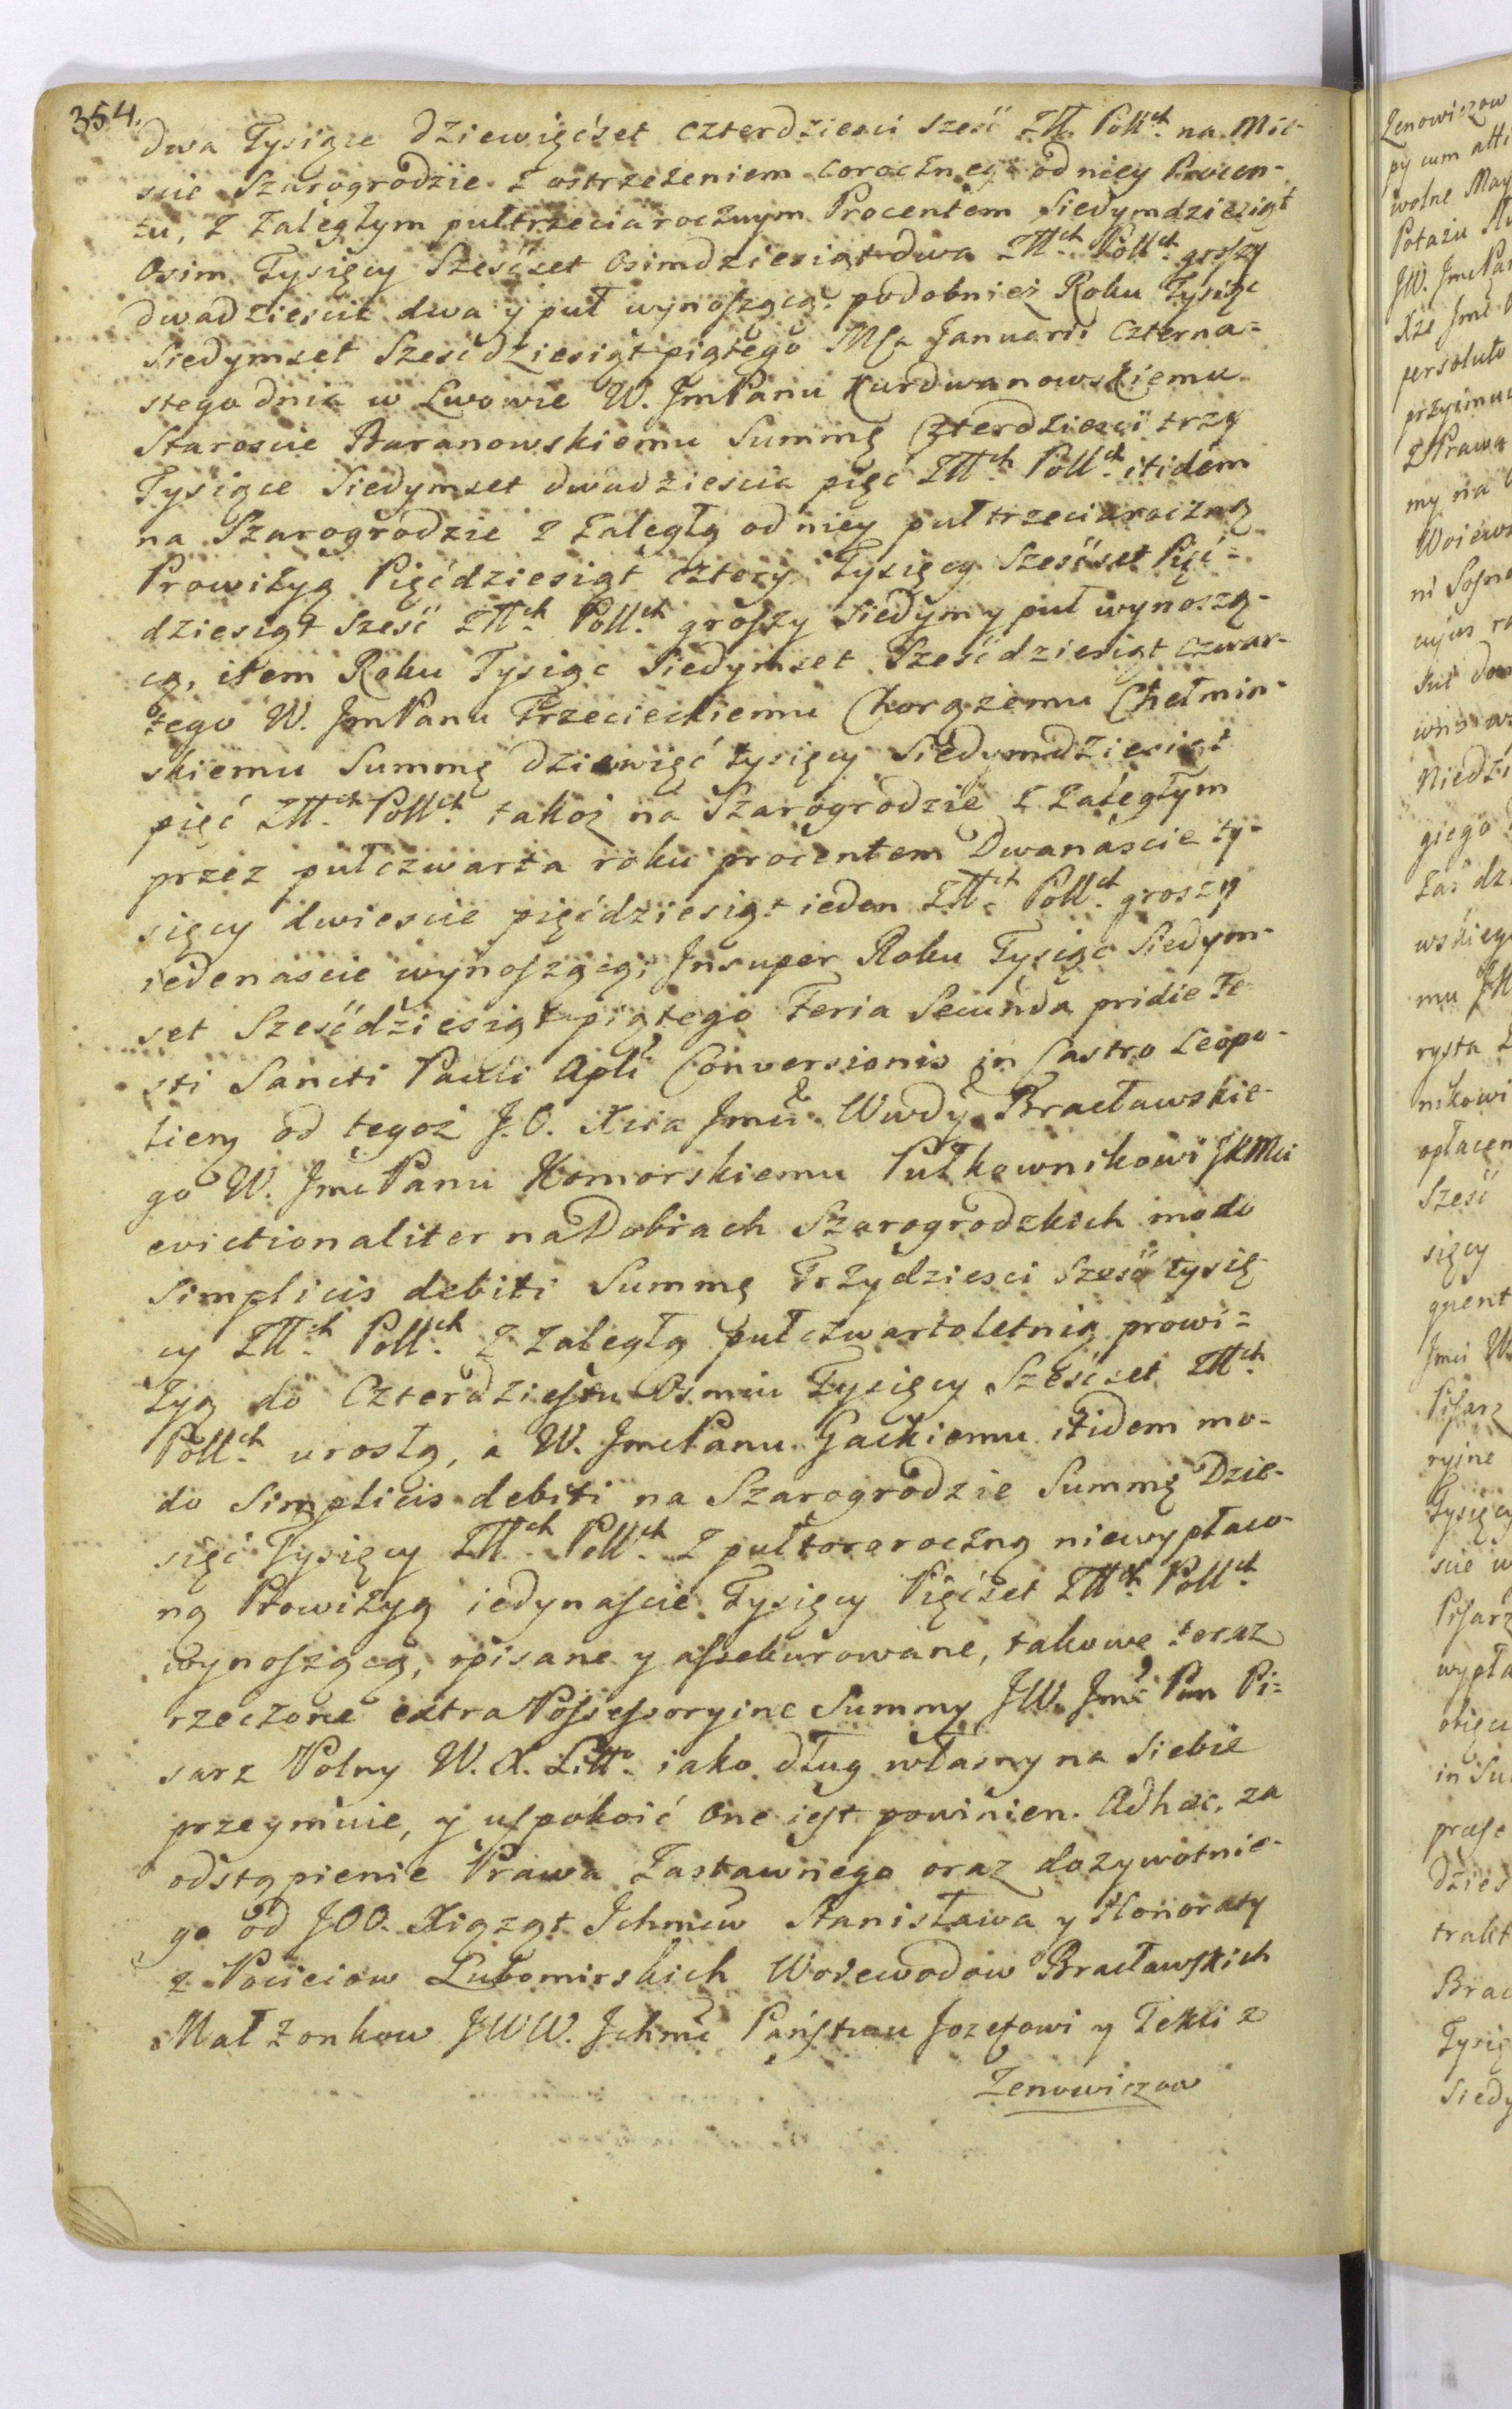 354.
dwa Tysiące dziewięćset czterdzieści sześć Złł. Poll<sup>ch</sup> na Mie-
scie Szarogrodzie z ostrzeżeniem corocznego od niey Procen-
tu, z zaległym pułtrzeciarocznym Procentem Siedymdziesiąt
Osim Tysięcy Sześćset Osimdziesiąt dwa Złł<sup>ch</sup> Poll<sup>ch</sup> groszy
dwadziescie dwa y puł wynoszącą; podobnież Roku Tysiąc
Siedymset Sześćdziesiąt piątego Msca Januarii czterna-
stego dnia w Lwowie W. JmPanu Kurdwanowskiemu
Staroscie Baranowskiemu Summę Czterdziesci trzy
Tysiące Siedymset dwadziescia pięć Złł<sup>ch</sup> Poll<sup>ch</sup> itidem
na Szarogrodzie z zaległą od niey pułtrzeciaroczną
Prowizyą Pięćdziesiąt cztery Tysięcy Sześćset Pięć-
dziesiąt Sześć Złł<sup>ch</sup> Poll<sup>ch</sup> groszy siedym y puł wynoszą-
cą, item Roku Tysiąc Siedymset Sześćdziesiąt czwar-
tego W. JmPanu Trzecieckiemu Chorążemu Chełmin-
skiemu Summę dziewięć tysięcy Siedymdziesiąt
pięć Złł<sup>ch</sup> Poll<sup>ch</sup> takoż na Szarogrodzie z zaległym
przez pułczwarta roku procentem Dwanaście ty-
sięcy dwiescie pięćdziesiąt ieden Złł<sup>ch</sup> Poll<sup>ch</sup> groszy
iedenascie wynoszącą; Insuper Roku Tysiąc Siedym-
set Sześćdziesiąt piątego Feria Secunda pridie Fe-
sti Sancti Pauli Apli Conversionis in Castro Leopo-
lien od tegoż J.O. Xcia Jmci Wwdy Bracławskie-
go W. JmcPanu Komorskiemu Pułkownikowi JKMci
evictionaliter na Dobrach Szarogrodzkich modo
Simplicis debiti Summę Trzydziesci Sześć tysię-
cy Złł<sup>ch</sup> Poll<sup>ch</sup> z zaległą pułczwartoletnią prowi-
zyą do Czterdziestu Osmiu Tysięcy Sześćset Złł<sup>ch</sup>
Poll<sup>ch</sup> urosłą, a W. JmcPanu Gackiemu itidem mo-
do Simplicis debiti na Szarogrodzie Summę Dzie-
sięć Tysięcy Złł<sup>ch</sup> Poll<sup>ch</sup> z pułtoraroczną niewypłaco-
ną Prowizyą iedynascie Tysięcy Pięćset Złł<sup>ch</sup> Poll<sup>ch</sup>
wynoszącą, opisane y assekurowane, takowe teraz
rzeczone extra Possessoryine Summy JW. Jmć Pan Pi-
sarz Polny W. X. Litt<sup>o</sup> iako dług własny na Siebie
przeymuie, y uspokoić One iest powinien. Adhac, za
odstąpienie Prawa Zastawnego oraz dozywotnie-
go od JOO. Xiążąt Ichmciow Stanisława y Honoraty
z Pocieiow Lubomirskich Woiewodow Bracławskich
Małzonkow JWW. Ichmć Państwu Jozefowi y Tekli z
Zenowiczow
Zenowiczow
py cum atti
wolne May
Potażu
JW. JmcPan
Xże Jmć
persoluto
przyimu
z Prawa
my na
Woiewo
ni
cujus
Niedź
giego
zaś dz
wskieg
mu JM
rysta
nikowi
opłacen
Sześć
sięcy
Jmci W
Pisarz
ryine
Tysięcy
scie w
Pisarz
wypła
obięci
in Su
dzies
trakt
Brac
Tysią
Siedy